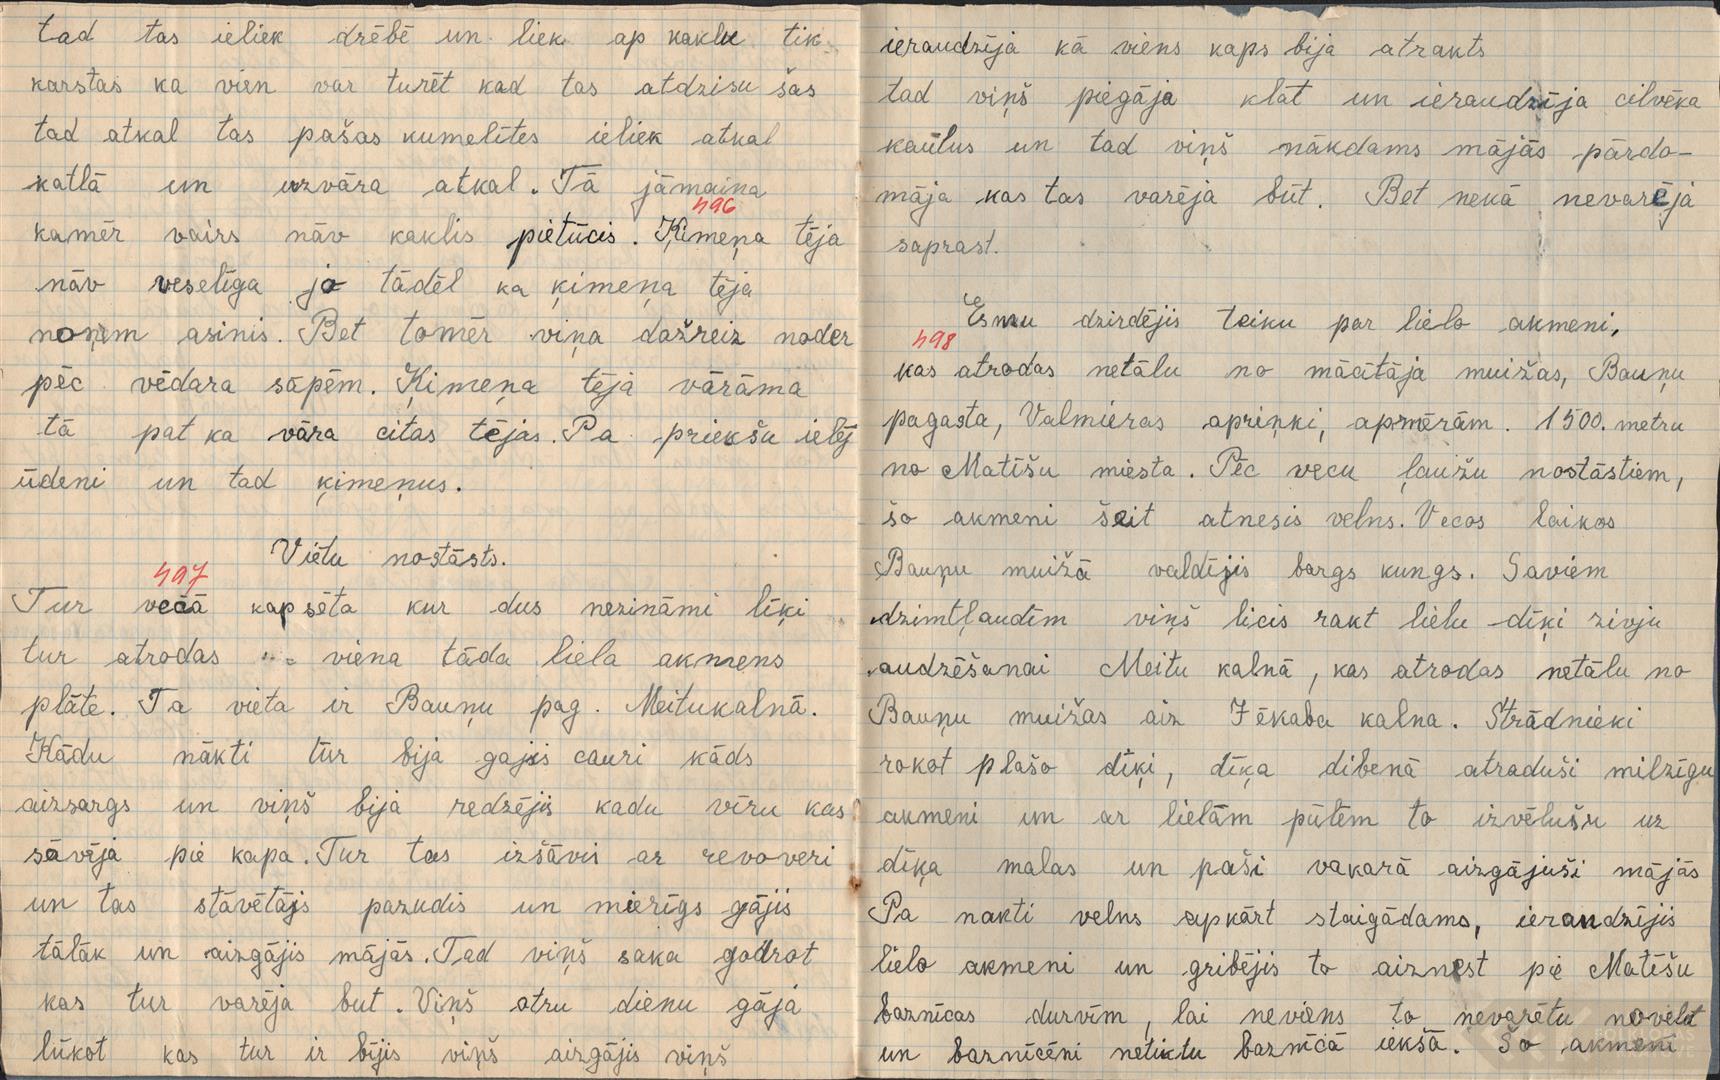 tad tas ieliek drēbē un liek ap kaklu tik
karstas ka vien var turēt kad tas atdzisu šas
tad atkal tas pašas kumelītes ieliek atkal
katlā un uzvāra atkal. Tā jāmaina
kamēr vairs nāv kaklis pietūcis. Ķimeņa tēja
496
nāv veselīga jo tādēl ka ķimeņa tēja
noņem asinis. Bet tomēr viņa dažreiz noder
pēc vēdara sāpēm. Ķimeņa tēja vārāma
tā pat ka vāra citas tējas. Pa priekšu ielēj
ūdeni un tad ķimeņus.
Vietu nostāsts.
497
Tur vecā kapsēta kur dus nezināmi līķi
tur atrodas viena tāda liela akmens
plāte. Ta vieta ir Bauņu pag. Meitukalnā.
Kādu nākti tūr bija gajis cauri kāds
aizsargs un viņš bija redzējis kadu vīru kas
sāvēja pie kapa. Tur tas izšāvis ar revoveri
un tas stāvētājs pazudis un mierīgs gājis
tālāk un aizgājis mājās. Tad viņš saka godrot
kas tur varēja but. Viņš otru dienu gājā
lūkot kas tur ir bījis viņš aizgājis viņš
ieraudzīja kā viens kaps bija atrakts
tad viņš piegāja klāt un ieraudzīja cilvēka
kaūlus un tad viņš nākdams mājās pārdo-
māja kas tas varēja būt. Bet nekā nevarēja
saprast.
Esmu dzirdējis teiku par lielo akmeni,
498
kas atrodas netālu no mācītāja muižas, Bauņu
pagasta, Valmieras apriņķi, apmērām. 1500. metru
no Matīšu miesta. Pēc vecu ļaužu nostāstiem,
šo akmeni šeit atnesis velns. Vecos laikos
Bauņu muižā valdījis bargs kungs. Saviem
dzimtļaudīm viņš licis rakt lielu dīķi zivju
audzēšanai Meitu kalnā, kas atrodas netālu no
Bauņu muižas aiz Jēkaba kalna. Strādnieki
rokot plašo dīķi, dīķa dibenā atraduši milzīgu
akmeni un ar lielām pūlēm to izvēlušu uz
dīķa malas un paši vakarā aizgājuši mājās
Pa nakti velns apkārt staigādams, ieraudzījis
lielo akmeni un gribējis to aiznest pie Matīšu
baznīcas durvīm, lai neviens to nevarētu novelt
un baznīcēni netiktu baznīcā iekšā. Šo akmeni